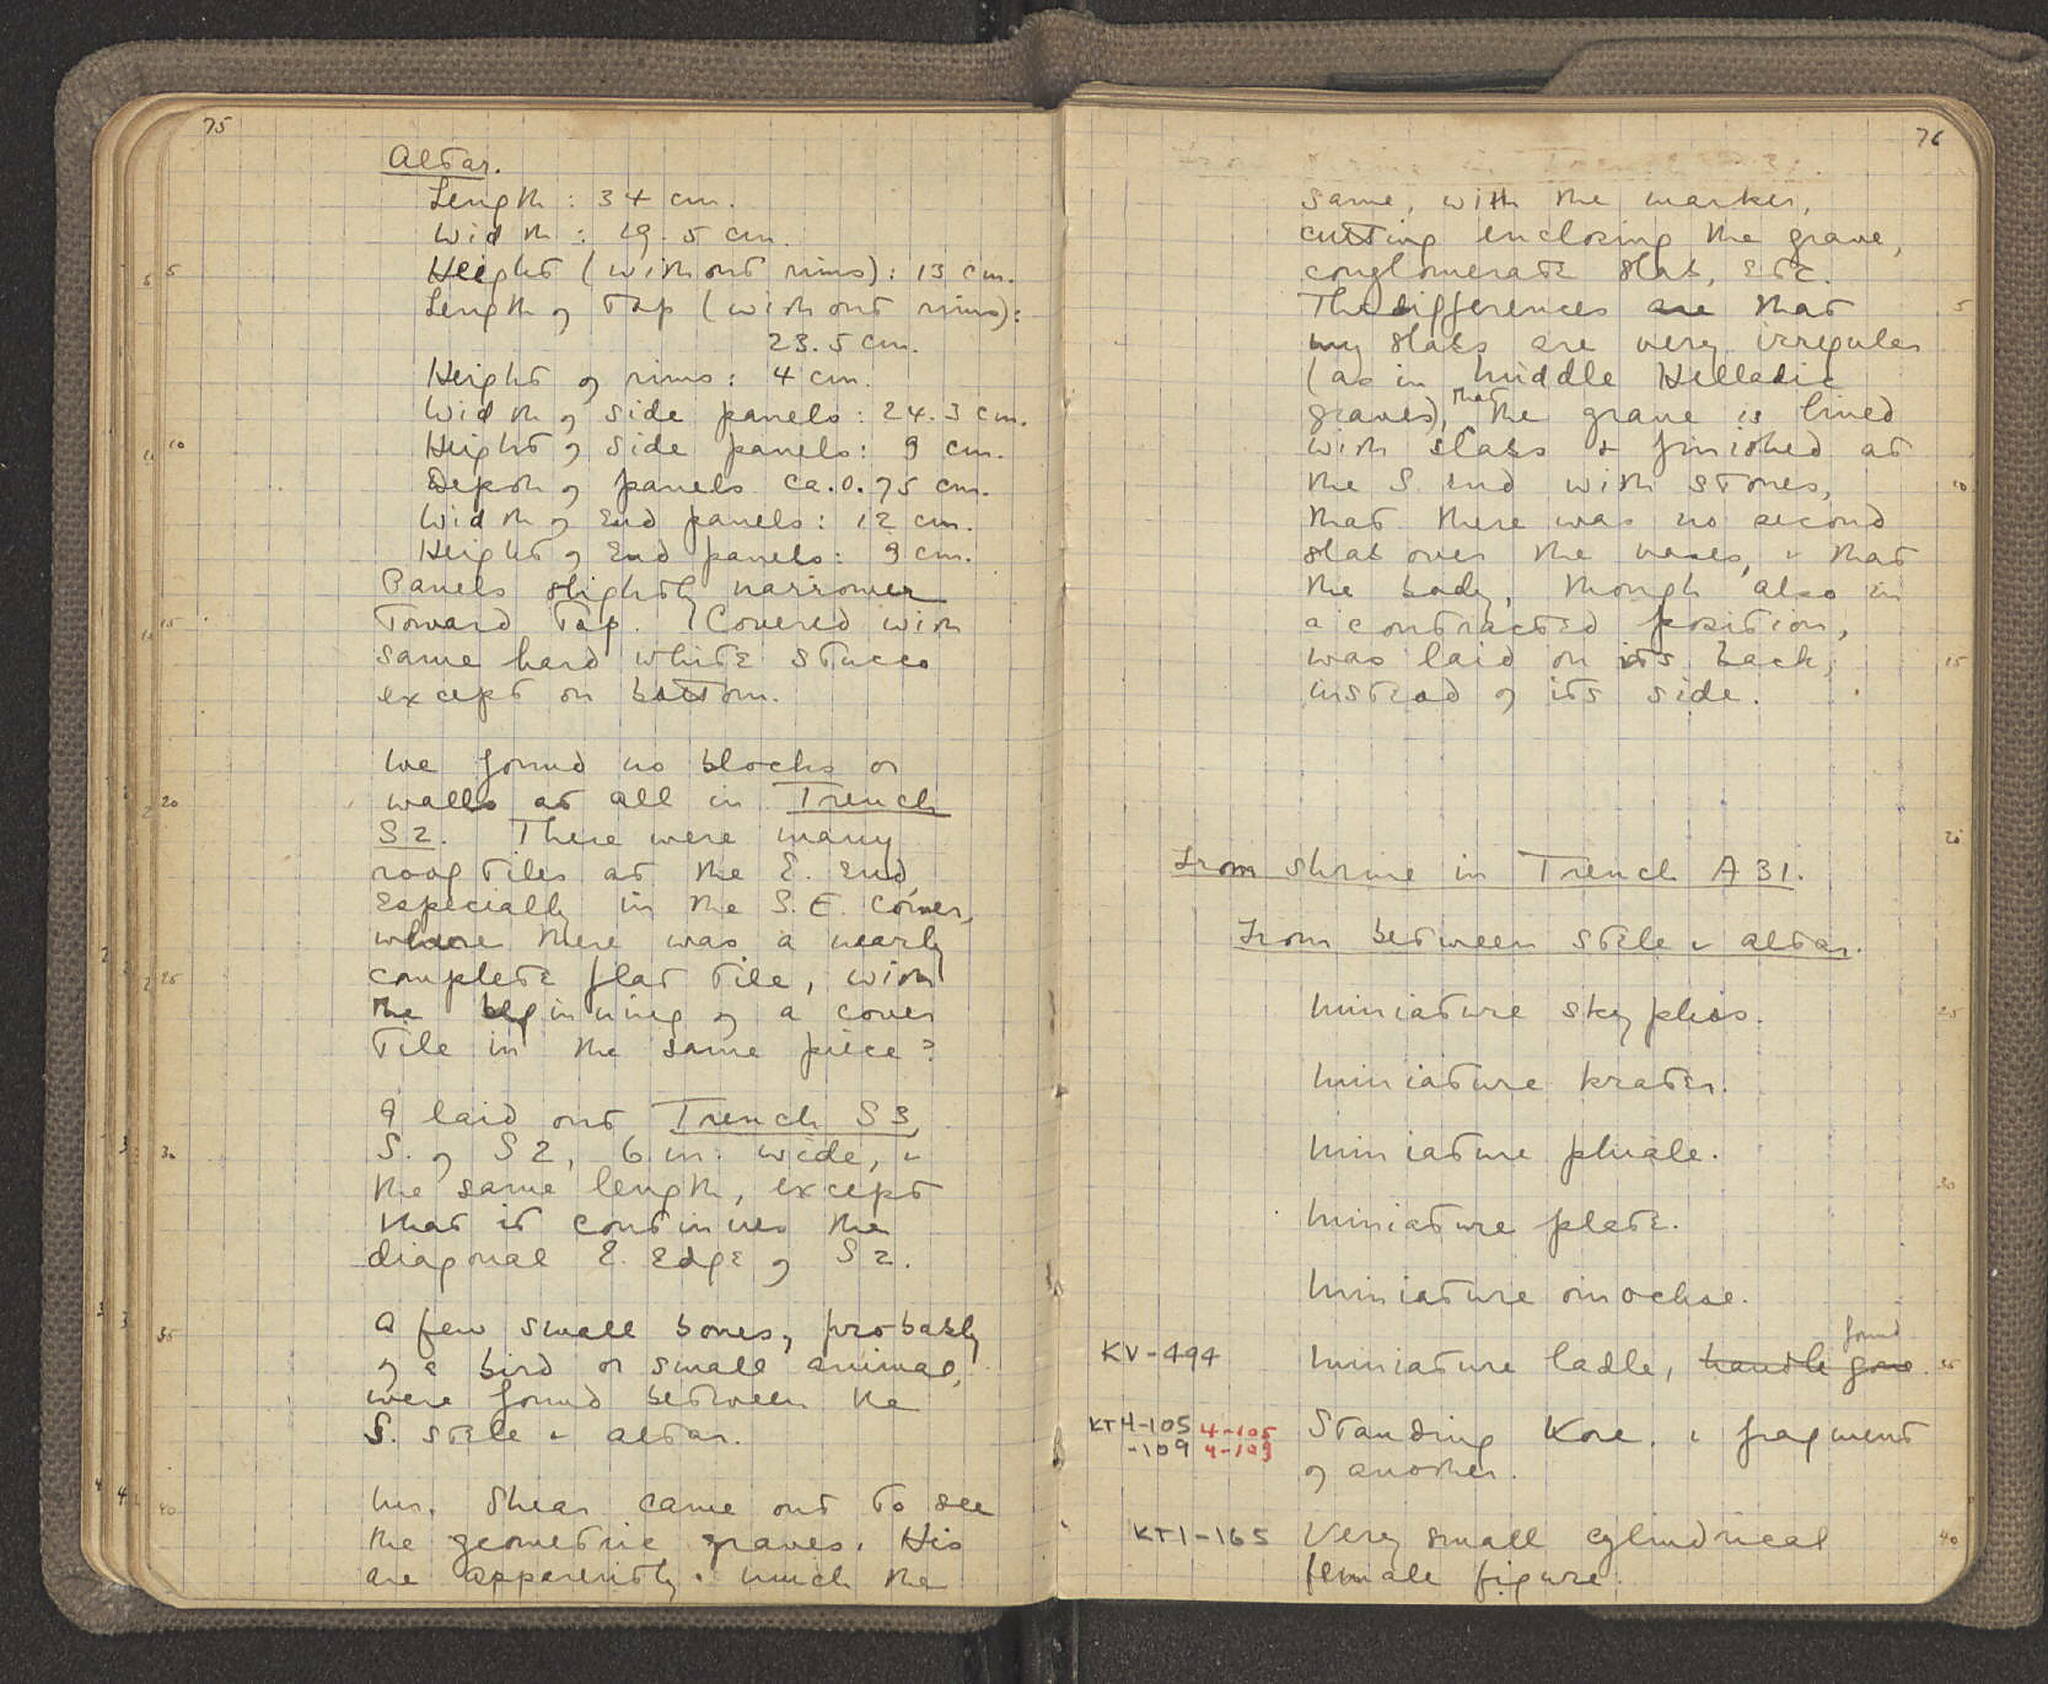 75
Altar.
Length : 34 cm.
Width : 19.5 cm.
Height (without rims) : 13 cm.
Length of top (without rims) :
23.5 cm.
Height of rims : 4 cm.
Width of side panels : 24.3 cm.
Height of side panels : 9 cm.
Depth of panels ca. 0.75 cm.
Width of end panels : 12 cm.
Height of end panels : 9 cm.
Panels slightly narrower
toward top. Covered with
same hard white stucco
except on bottom.
We found no blocks or
walls at all in Trench
S2. There were many
roof tiles at the E. end,
especially in the S.E. corner,
where there was a nearly
complete flat tile, with
the beginning of a cover
tile in the same piece?
I laid out Trench S3,
S. of S2, 6 m. wide, &
the same length, except
that it continues the
diagonal E. edge of S2.
A few small bones, probably
of a bird or small animal,
were found between the
S. stele & altar.
Mr. Shear came out to see
the geometric graves. His
are apparently much the
5
10
15
20
25
30
35
40
76
same, with the marker,
cutting enclosing the grave,
conglomerate slab, etc.
The differences are that
my slabs are very irregular
(as in Middle Helladic
graves), that the grave is lined
with slabs & finished at
the S. end with stones,
that there was no second
slab over the vases, & that
the body, though also in
a contracted position,
was laid on its back,
instead of its side.
From shrine in Trench A 31.
From between stele & altar.
Miniature skyphos.
Miniature krater.
Miniature phiale.
Miniature plate.
Miniature oinochoe.
KV-494 Miniature ladle, handle gone. found
KT4-105 4-105 Standing Kore, & fragment
-109 4-109 of another.
KT1-165 Very small cylindrical
female figure.
5
10
15
20
25
30
35
40